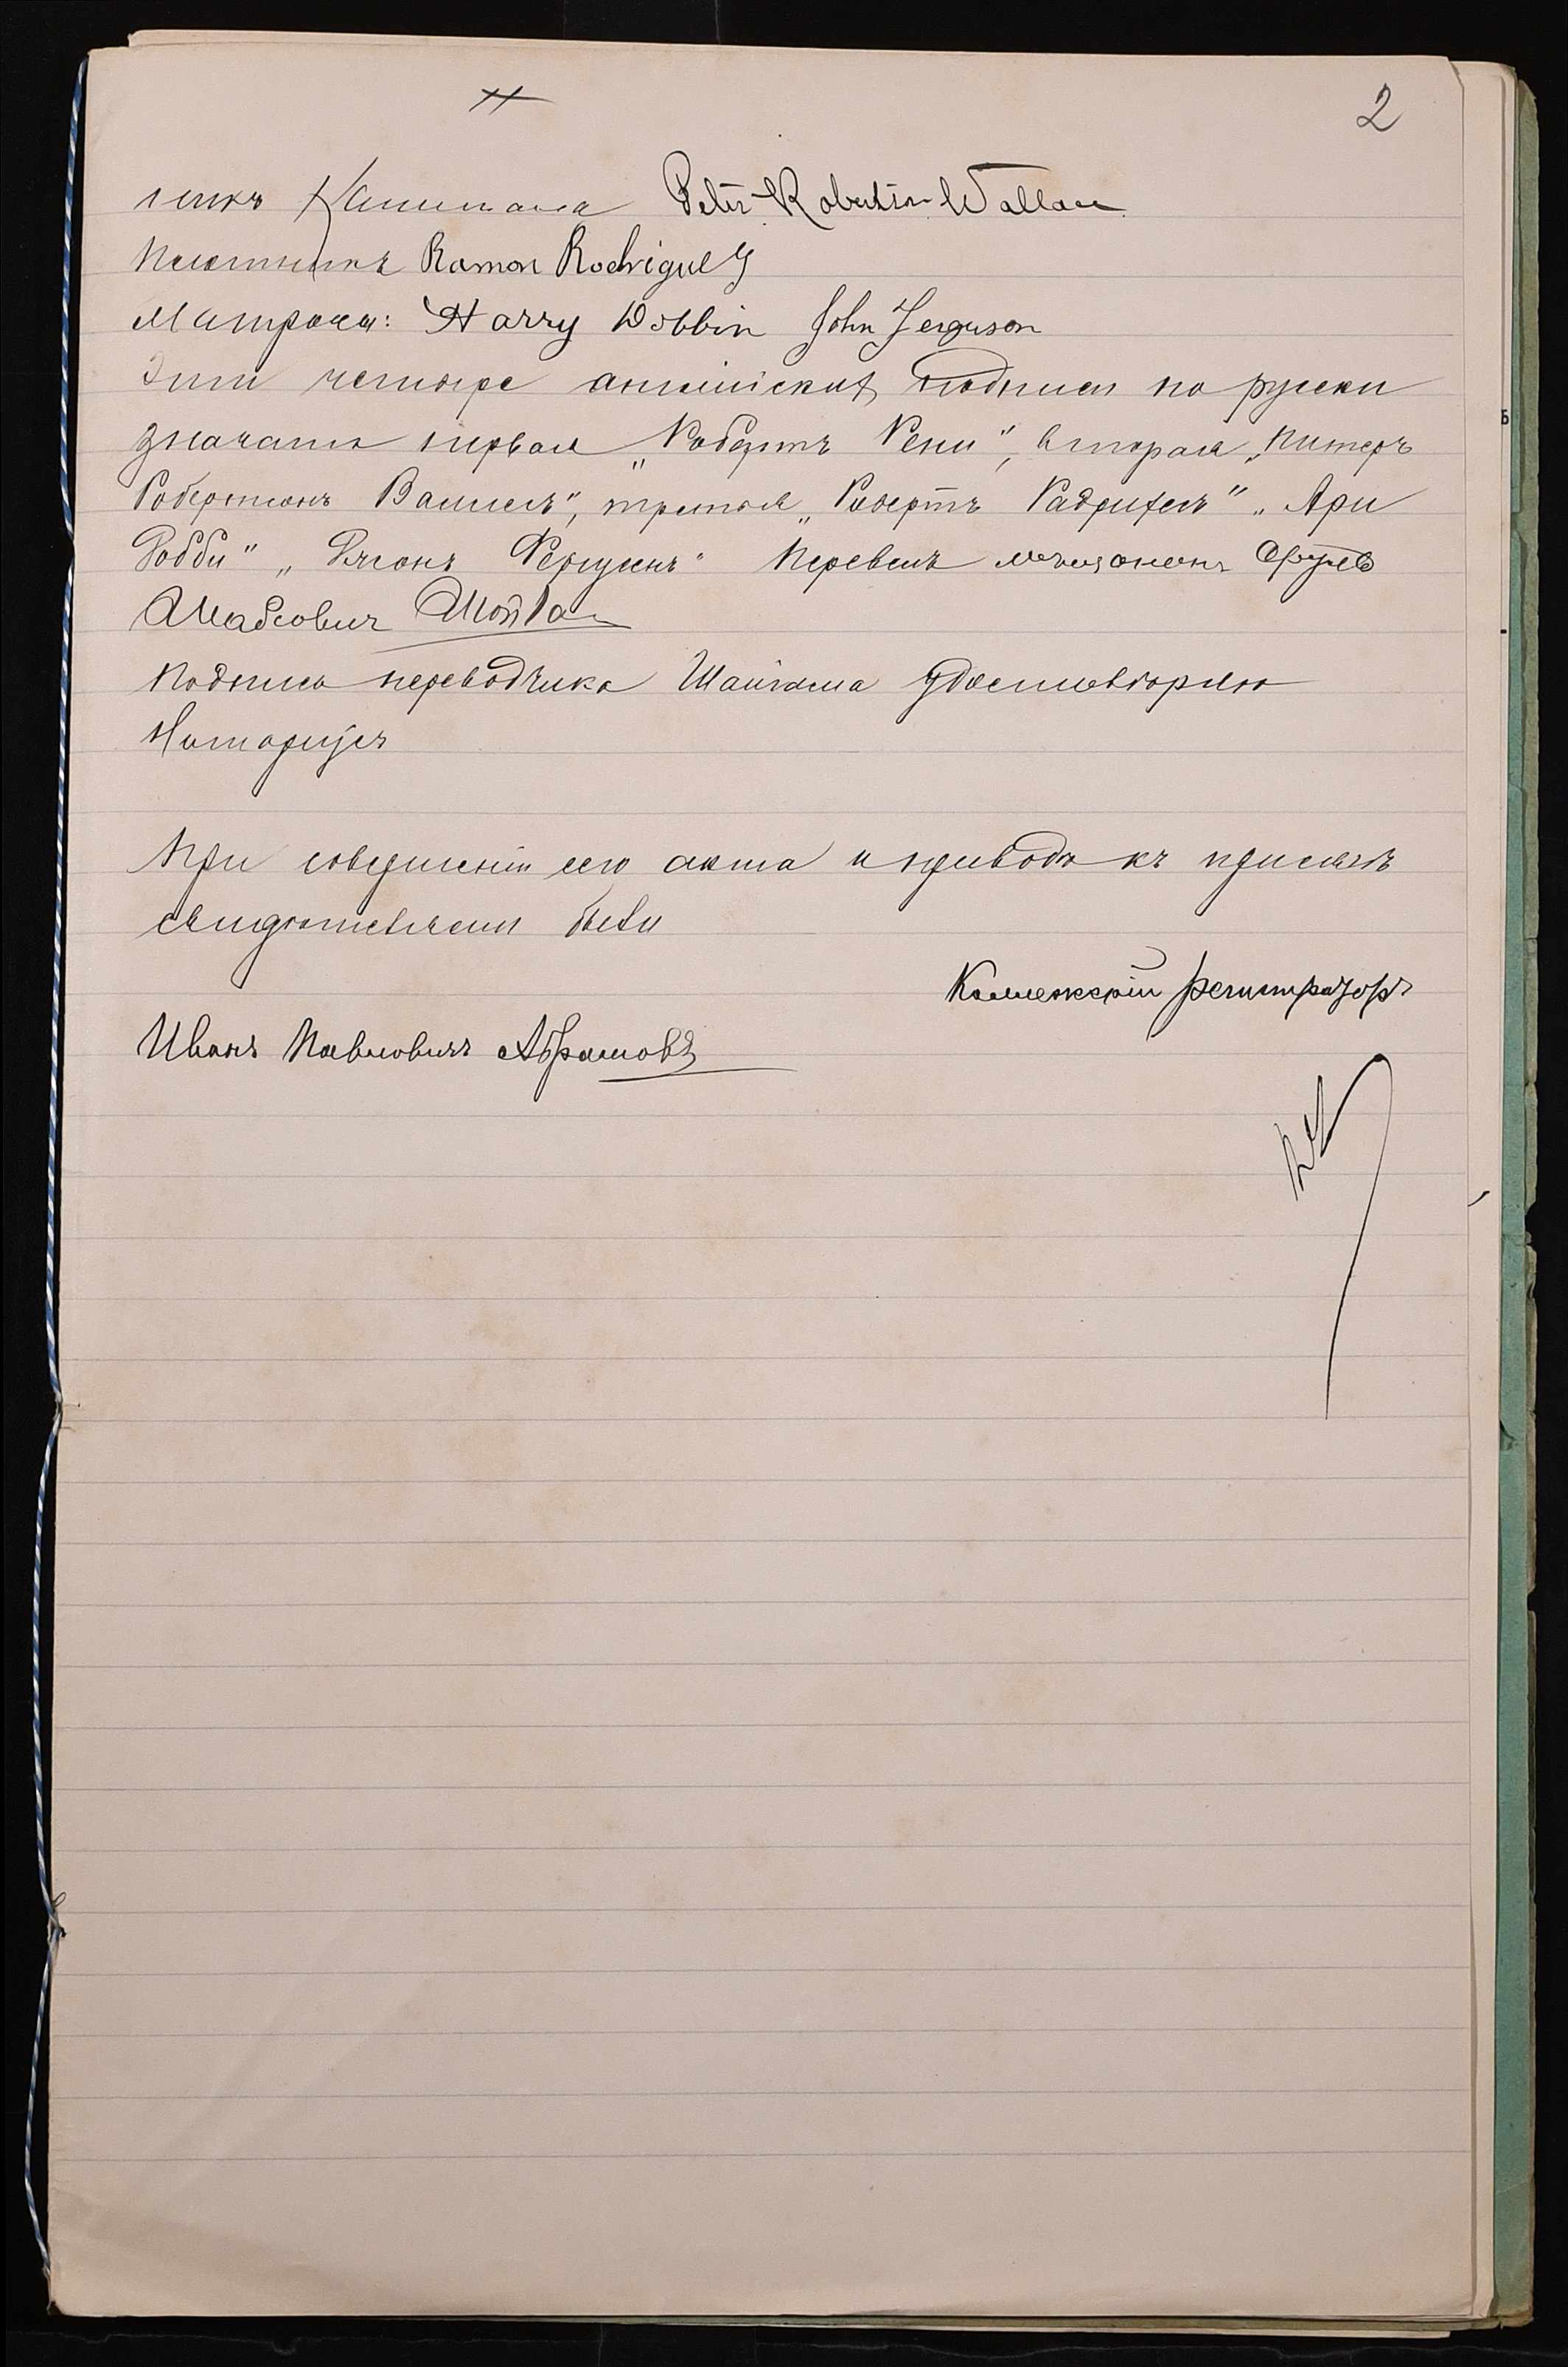 2
никъ Капитана Peter Robertson Wallace
Плотникъ Ramon Rodriguez
Матросы: Harry Dobbin John Ferguson
Эти четыре английскія подписи по русски
значатъ первая „Робертъ Рени", вторая „Питеръ
Робертсонъ Валлесъ", третья „Робертъ Радригесъ" „Ари
Добби" „Джонъ Фергусенъ" Перевелъ мѣщанинъ
Подпись переводчика удостовѣряю
Нотаріусъ
При совершеніи сего акта и приводѣ къ присягѣ
свидѣтелями были
Коллежскій регистраторъ
Иванъ Павловичъ Абрамовъ